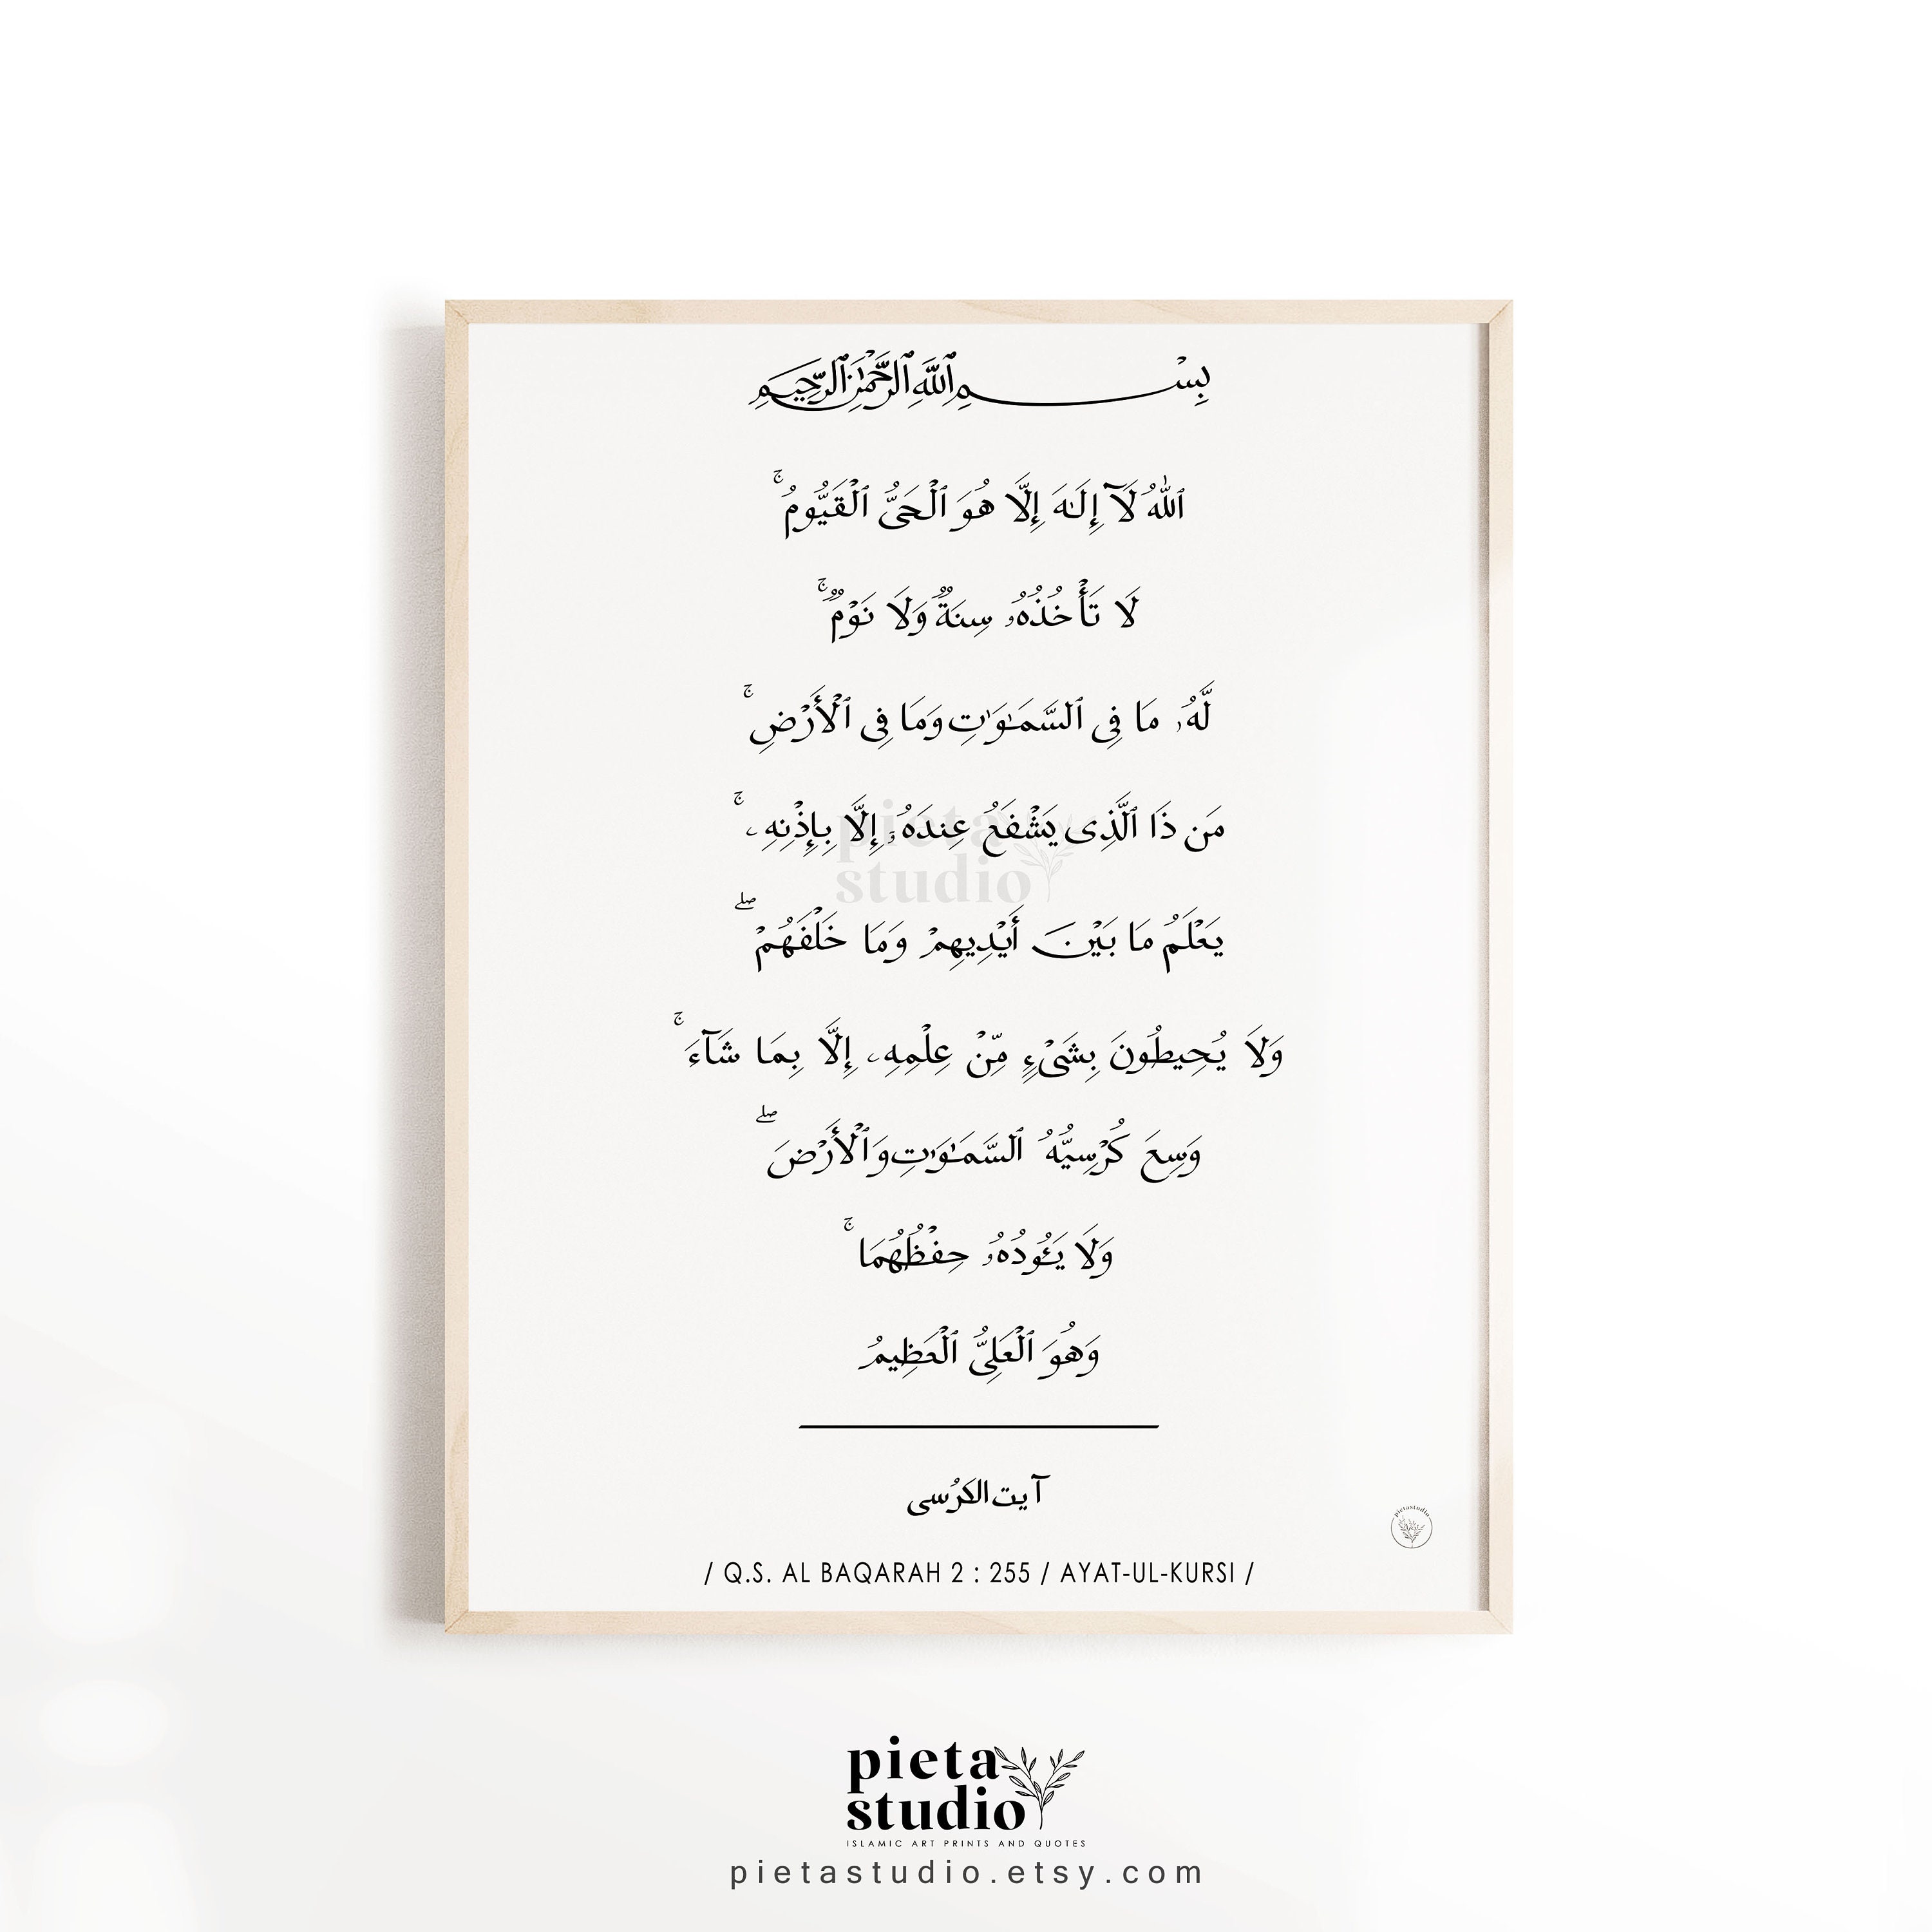 بِسْمِ ٱللَّهِ ٱلرَّحْمَٰنِ ٱلرَّحِيمِ
ٱللَّهُ لَآ إِلَـٰهَ إِلَّا هُوَ ٱلْحَىُّ ٱلْقَيُّومُ ۚ
لَا تَأْخُذُهُۥ سِنَةٌ وَلَا نَوْمٌ ۚ
لَّهُۥ مَا فِى ٱلسَّمَـٰوَٰتِ وَمَا فِى ٱلْأَرْضِ ۚ
مَن ذَا ٱلَّذِى يَشْفَعُ عِندَهُۥٓ إِلَّا بِإِذْنِهِۦ ۚ
pieta
studio
يَعْلَمُ مَا بَيْنَ أَيْدِيهِمْ وَمَا خَلْفَهُمْ ۖ
وَلَا يُحِيطُونَ بِشَىْءٍ مِّنْ عِلْمِهِۦ إِلَّا بِمَا شَآءَ ۚ
وَسِعَ كُرْسِيُّهُ ٱلسَّمَـٰوَٰتِ وَٱلْأَرْضَ ۖ
وَلَا يَـُٔودُهُۥ حِفْظُهُمَا ۚ
وَهُوَ ٱلْعَلِىُّ ٱلْعَظِيمُ
آيت الكَرُسى
pietastudio
/ Q.S. AL BAQARAH 2 : 255 / AYAT-UL-KURSI /
pieta
studio
ISLAMIC ART PRINTS AND QUOTES
pietastudio.etsy.com